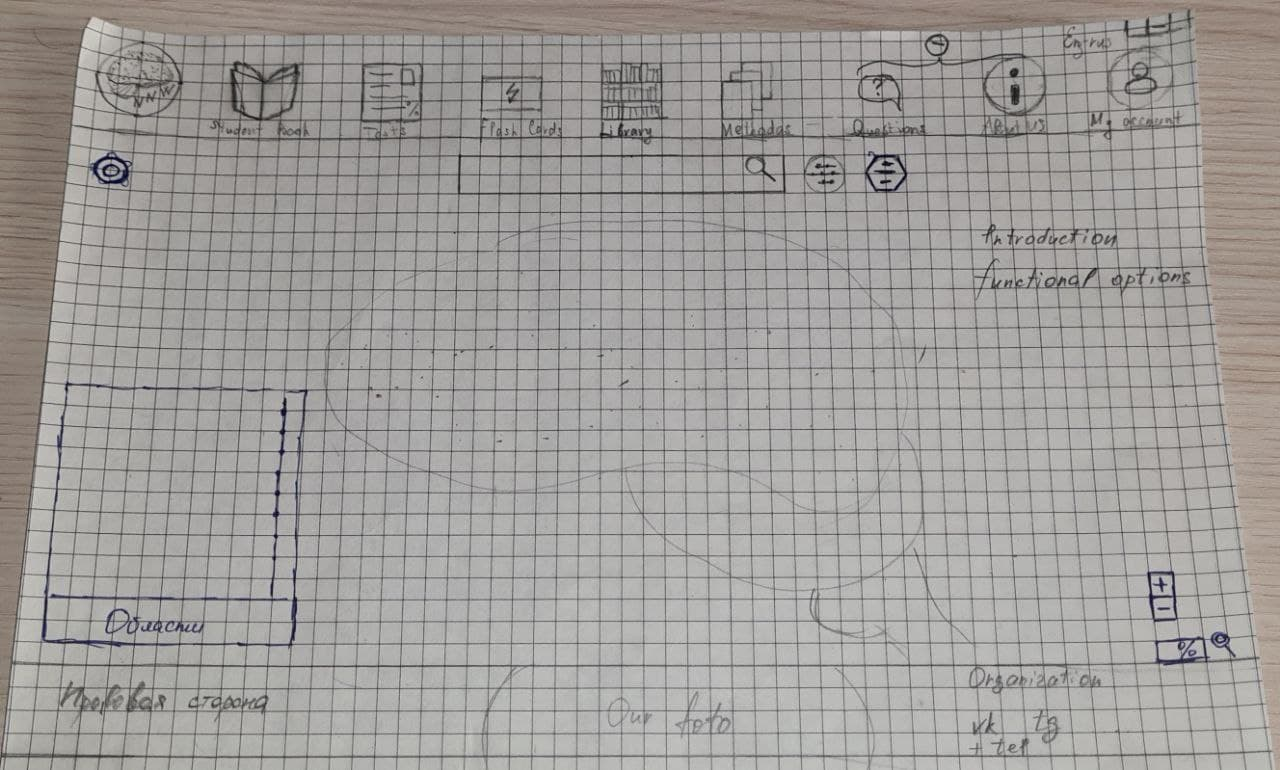 WWW
Student book
Tests
%
Flash Cards
Library
Methodas
?
Questions
i
About us
Eng-rus
My account
Introduction
functional options
Области
+
−
%
Правовая сторона
Our foto
Organization
vk tg
+ tel